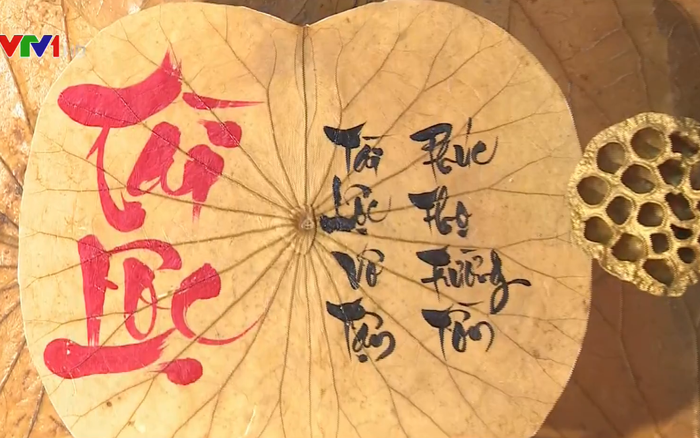 VTV1
Tài
Lộc
Tài
Lộc
Vô
Tận
Phúc
Thọ
Trường
Tồn